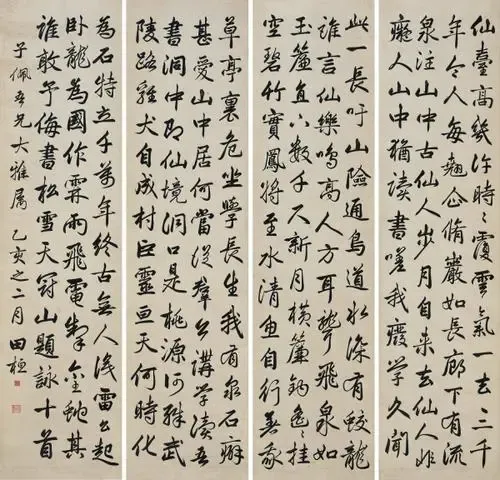 仙臺高幾許時時覆雲氣一去三千
年令人每翹企脩巖如長廊下有流
泉注山中古仙人步月自来去仙人非
癡人山中猶讀書嗟我廢學久聞
此一長吁山險通鳥道水深有蛟龍
誰言仙樂鳴高人方耳聾飛泉如
玉簾直下數千尺新月横簾鈎遙遙挂
空碧竹實鳳將至水清魚自行善哉
草亭裏危坐學長生我有泉石癖
甚愛山中居何當從群公講學讀吾
書洞中即仙境洞口是桃源何殊武
陵路雞犬自成村巨靈亘天何時化
為石特立千萬年終古無人識雷公起
卧龍為國作霖雨飛電掣金蛇其
誰敢予侮書松雪天冠山題詠十首
子佩吾兄大雅属 乙亥之二月 田桓